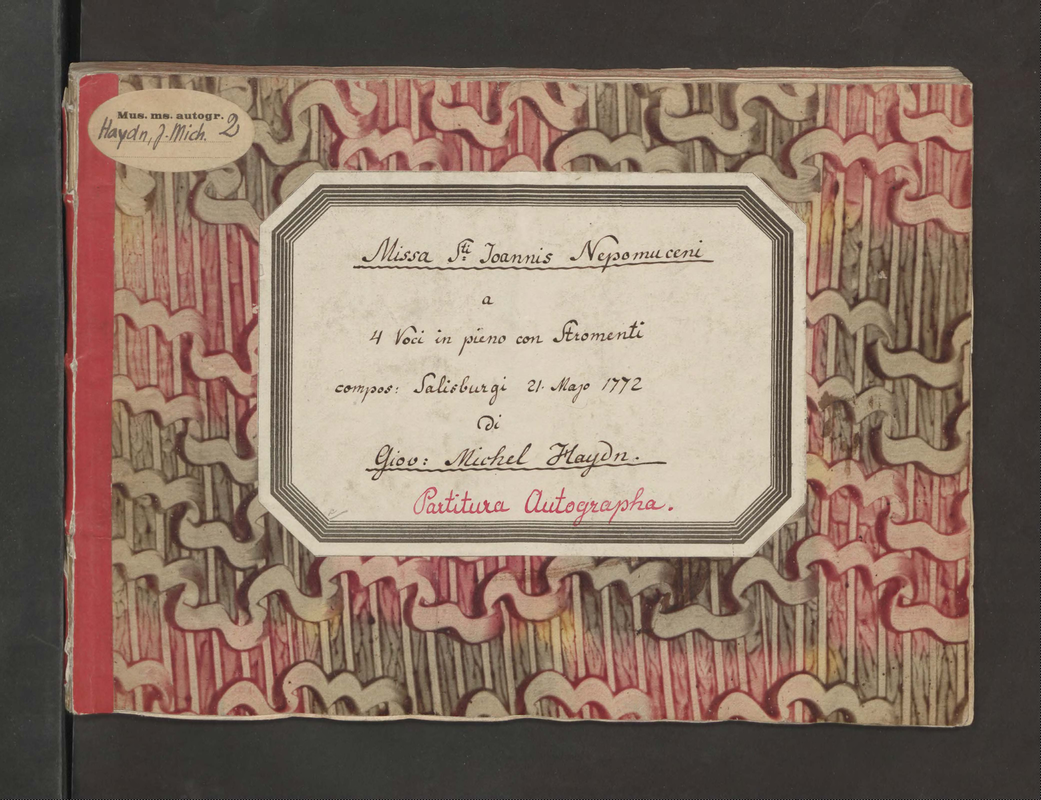 Mus. ms. autogr.
Haydn, J. Mich. 2
Missa Sti Joannis Nepomuceni
a
4 Voci in pieno con Stromenti
compos: Salisburgi 21. Majo 1772
di
Giov: Michel Haydn.
Partitura Autographa.